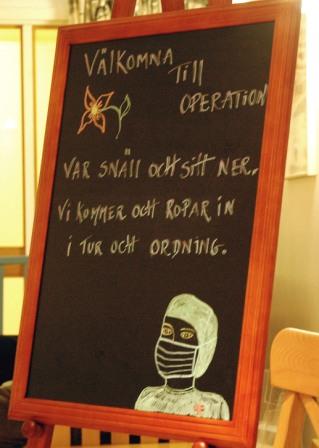 VÄLKOMNA
TILL
OPERATION
VAR SNÄLL OCH SITT NER.
VI KOMMER OCH ROPAR IN
I TUR OCH ORDNING.